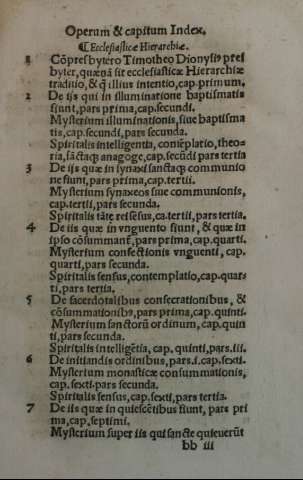 Operum & capitum Index.
¶ Ecclesiasticæ Hierarchiæ.
1 Cōpresbytero Timotheo Dionysiꝰ pres
byter, quænā sit ecclesiasticæ Hierarchiæ
traditio, & q̄ illius intentio, cap. primum.
2 De ijs qui in illuminatione baptismatis
siunt, pars prima, cap. secundi.
Mysterium illuminationis, siue baptisma
tis, cap. secundi, pars secunda.
Spiritalis intelligentia, contēplatio, theo-
ria, sāctaq; anagoge, cap. secūdi pars tertia
3 De ijs quæ in synaxi sanctaq; communio
ne fiunt, pars prima, cap. tertii.
Mysterium synaxeos siue communionis,
cap. tertii, pars secunda.
Spiritalis tāte rei sesus, ca. tertii, pars tertia.
4 De iis quæ in vnguento fiunt, & quæ in
ipso cōsummant, pars prima, cap. quarti.
Mysterium confectionis vnguenti, cap.
quarti, pars secunda.
Spiritalis sensus, contemplatio, cap. quar
ti, pars tertia.
5 De sacerdotalibus consecrationibus, &
cōsummationibꝰ, pars prima, cap. quinti.
Mysterium sanctorū ordinum, cap. quin
ti, pars secunda.
Spiritalis intelligētia, cap. quinti, pars. iii.
6 De initiandis ordinibus, pars. i. cap. sexti.
Mysterium monasticæ consummationis,
cap. sexti. pars secunda.
Spiritalis sensus, cap. sexti, pars tertia.
7 De iis quæ in quiescētibus fiunt, pars pri
ma, cap. septimi.
Mysterium super iis qui sancte quieuerūt
bb iii